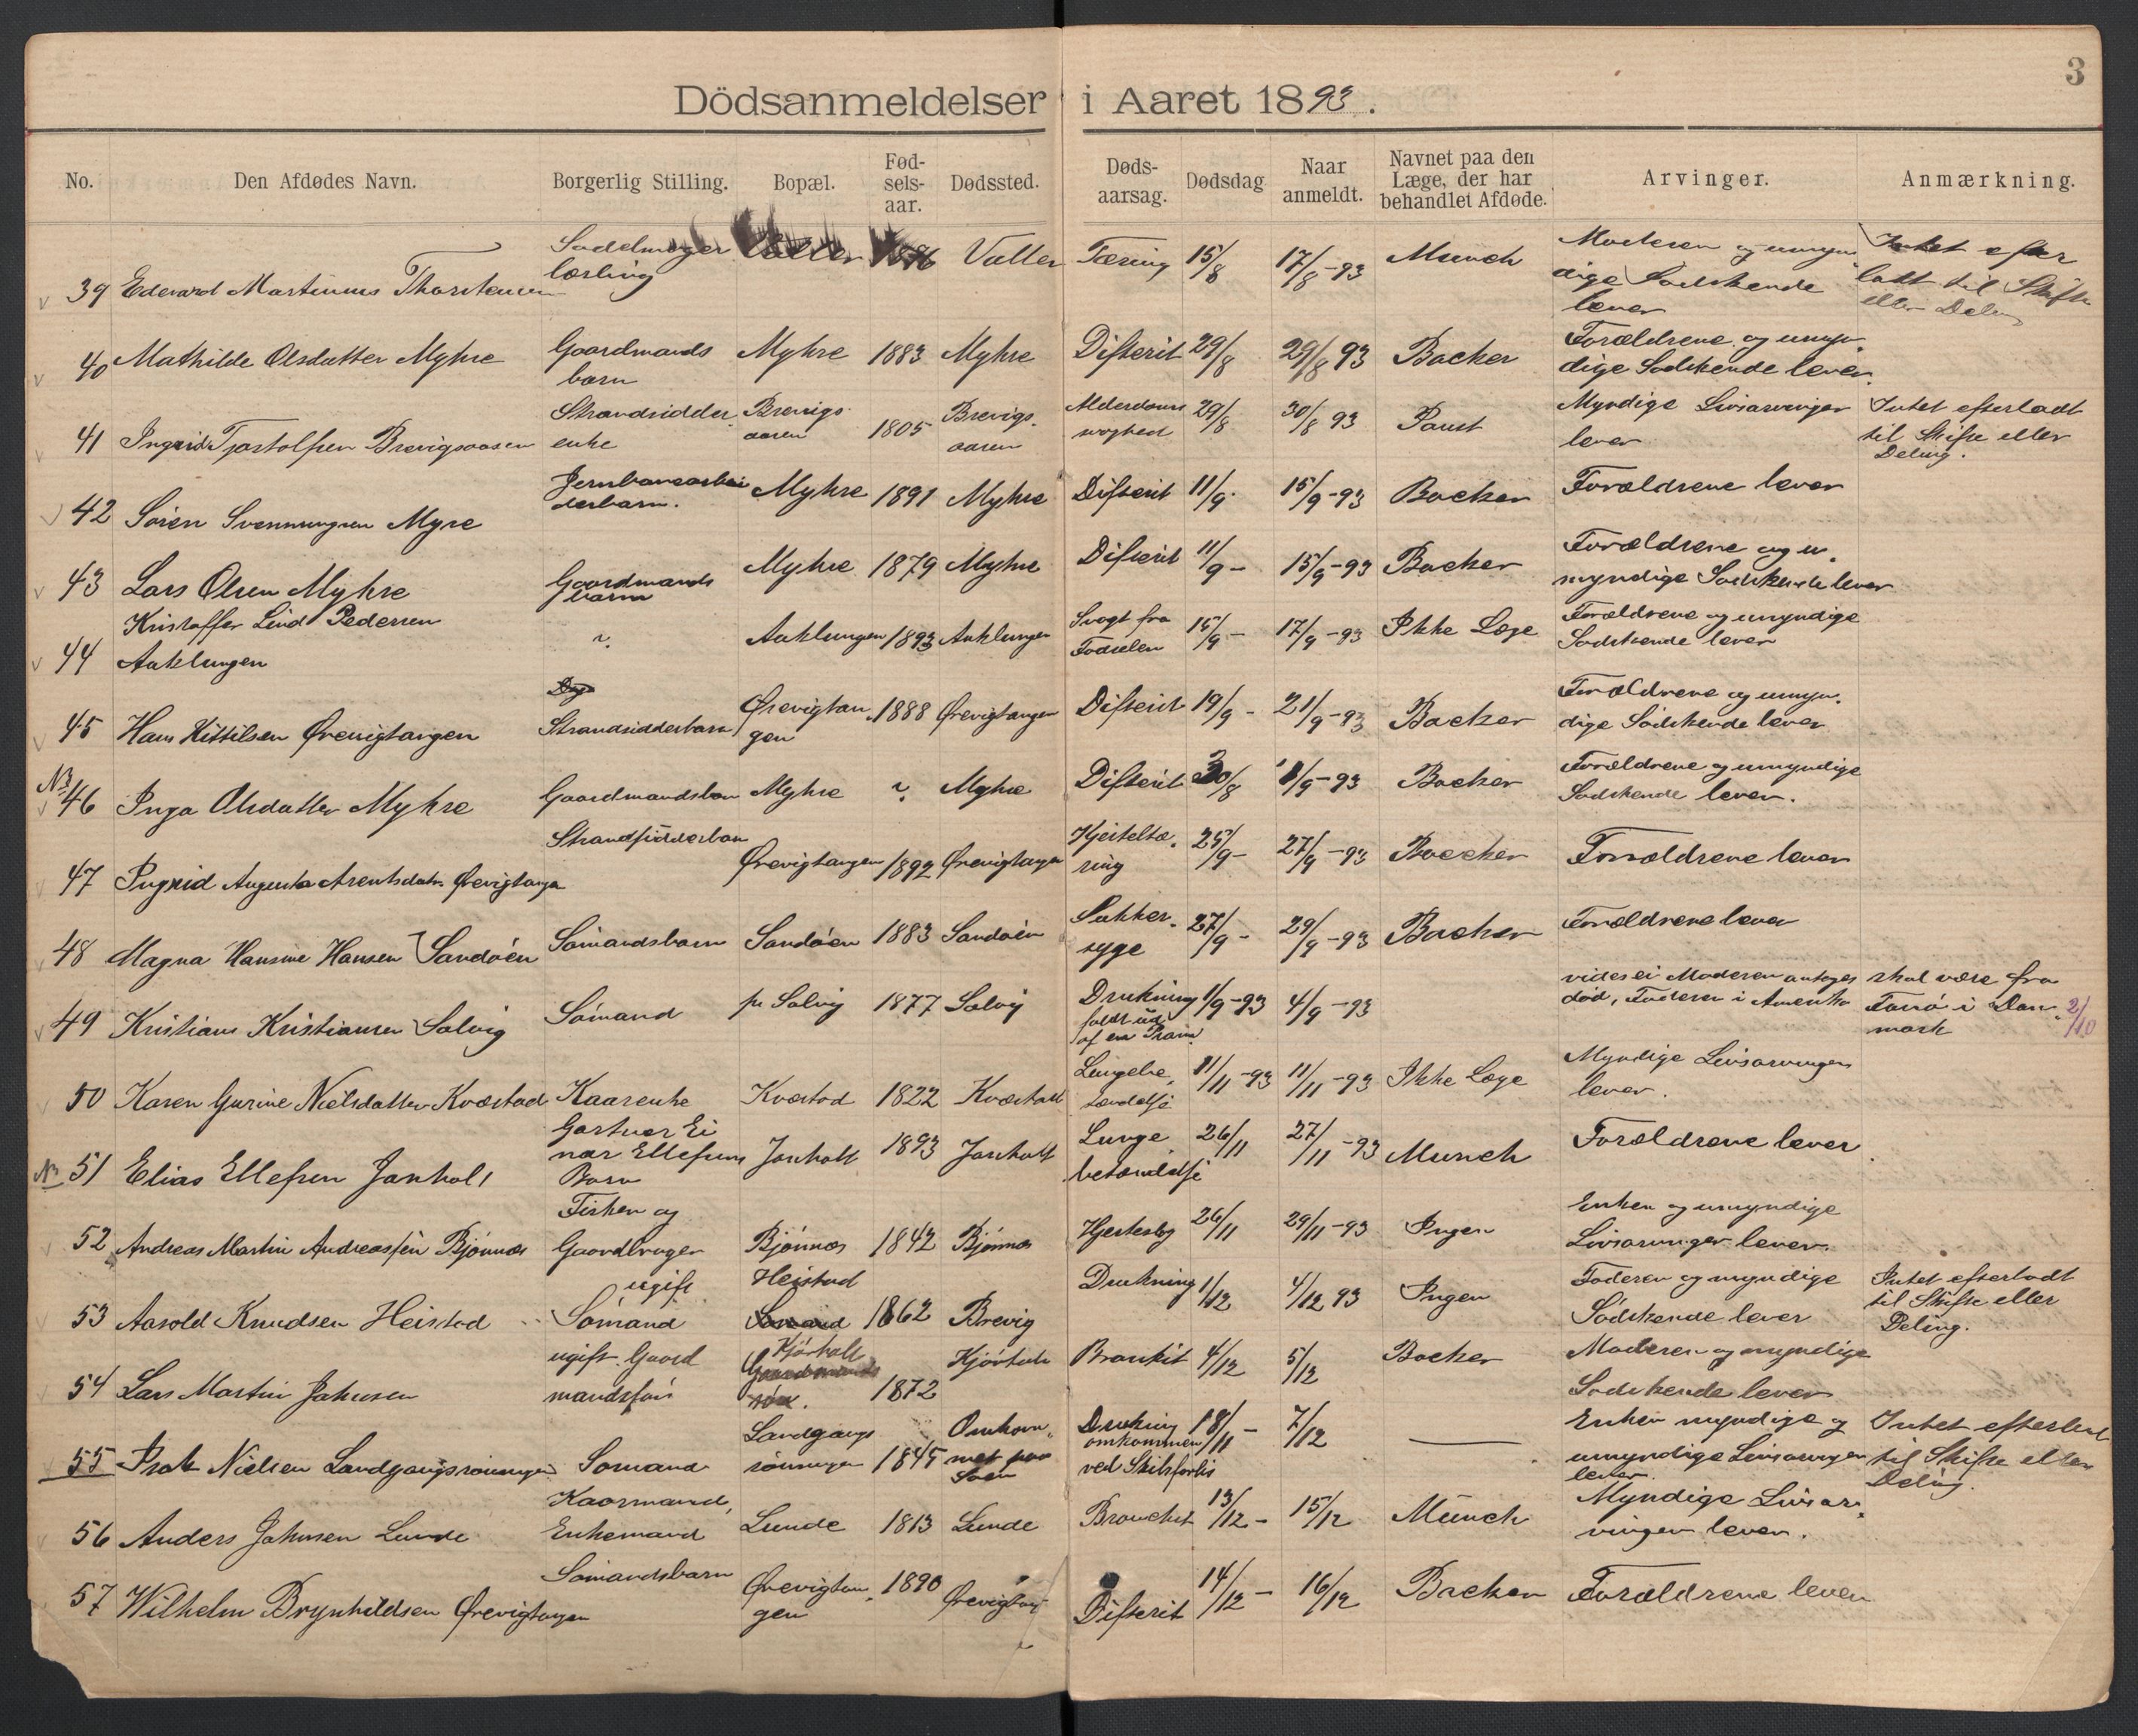 3
Dödsanmeldelser i Aaret 1893.
No. Den Afdødes Navn. Borgerlig Stilling. Bopæl. Fød-sels-aar. Dødssted. Døds-aarsag. Dødsdag Naar anmeldt. Navnet paa den Læge, der har behandlet Afdøde. Arvinger. Anmærkning.
39 Edevard Martinius Thorstensen Sadelmager lærling Valler Tæring 15/8 17/8-93 Munch Moderen og umyndige Sødskende lever Intet efterladt til Skifte eller Deling
40 Mathilde Olsdatter Myhre Gaardmands barn Myhre 1883 Myhre Difterit 29/8 29/8 93 Backer Forældrene og umyndige Sødskende lever.
41 Ingrid Tjostolfsen Brevigsaasen Strandsidder enke Brevigsaasen 1805 Brevigsaasen Alderdoms svaghed 29/8 30/8 93 Paust Myndige Livsarvinger lever Intet efterladt til Skifte eller Deling.
42 Sören Svennungsen Myre Jernbanearbeiderbarn. Myhre 1891 Myhre Difterit 11/9. 15/9-93 Backer Forældrene lever
43 Lars Olsen Myhre Gaardmands barn Myhre 1879 Myhre Difterit 11/9- 15/9-93 Backer Forældrene og umyndige Sødskende lever
44 Kristoffer Lind Pedersen Aaklungen " Aaklungen 1893 Aaklungen Svagt fra Fødselen 15/9- 17/9-93 Ikke Læge Forældrene og umyndige Sødskende lever
45 Hans Kittilsen Ørevigtangen Strandsidderbarn Ørevigtangen 1888 Ørevigtangen Difterit 19/9- 21/9-93 Backer Forældrene og umyndige Södskende lever
N3 46 Inga Olsdatter Myhre Gaardmandsbarn Myhre " Myhre Difterit 30/8 1/9-93 Backer Forældrene og umyndige Sødskende lever.
47 Ingrid Augusta Arentsdatr. Ørevigtangen Strandsidderbarn Ørevigtangen 1892 Ørevigtangen Kjerteltæring 25/9- 27/9-93 Backer Forældrene lever
48 Magna Hansine Hansen Sandöen Sömandsbarn Sandöen 1883 Sandöen Sukkersyge 27/9- 29/9-93 Backer Forældrene lever
49 Kristians Kristiansen Salvig Sömand p Salvig 1877 Salvig Drukning faldt ud af en Pram. 1/9-93 4/9-93 vides ei Moderen antages död, Faderen i Amerika skal være fra Fanö i Danmark 2/10
50 Karen Gurine Nielsdatter Kværstad Kaarenke Kværstad 1822 Kværstad Lungebetændelse 11/11-93 11/11-93 Ikke Læge Myndige Livsarvinger lever.
N 51 Elias Ellefsen Janholt Gartner Einar Ellefsens Barn Janholt 1893 Janholt Lungebetændelse 26/11 27/11-93 Munch Forældrene lever.
52 Andreas Martin Andreassen Bjönnes Fisker og Gaardbruger Bjönnes 1842 Bjönnes Hjerteslag 26/11 29/11-93 Ingen Enken og umyndige Livsarvinger lever.
53 Aasold Knudsen Heistad ugift Sömand Heistad 1862 Brevig Drukning 1/12 4/12 93 Ingen Faderen og myndige Södskende lever Intet efterladt til Skifte eller Deling.
54 Lars Martin Jahnsen ugift. Gaardmandssön Kjörholt 1872 Kjörholt Bronkit 4/12 5/12 Backer Moderen og myndige Sødskende lever
55 Isak Nielsen Landgangsrönningen Sömand Landgangsrönningen 1845 Omkommet paa Söen Drukning omkommen ved Skibsforlis 18/11- 7/12 — Enken myndige og umyndige Livsarvinger lever. Intet efterladt til Skifte eller Deling.
56 Anders Jahnsen Lunde Kaarmand, Enkemand Lunde 1813 Lunde Bronchit 13/12- 15/12 Münch Myndige Livsarvinger lever.
57 Wilhelm Brynhildsen Ørevigtangen Sömandsbarn Ørevigtangen 1890 Ørevigtang Difterit 14/12- 16/12 Backer Forældrene lever